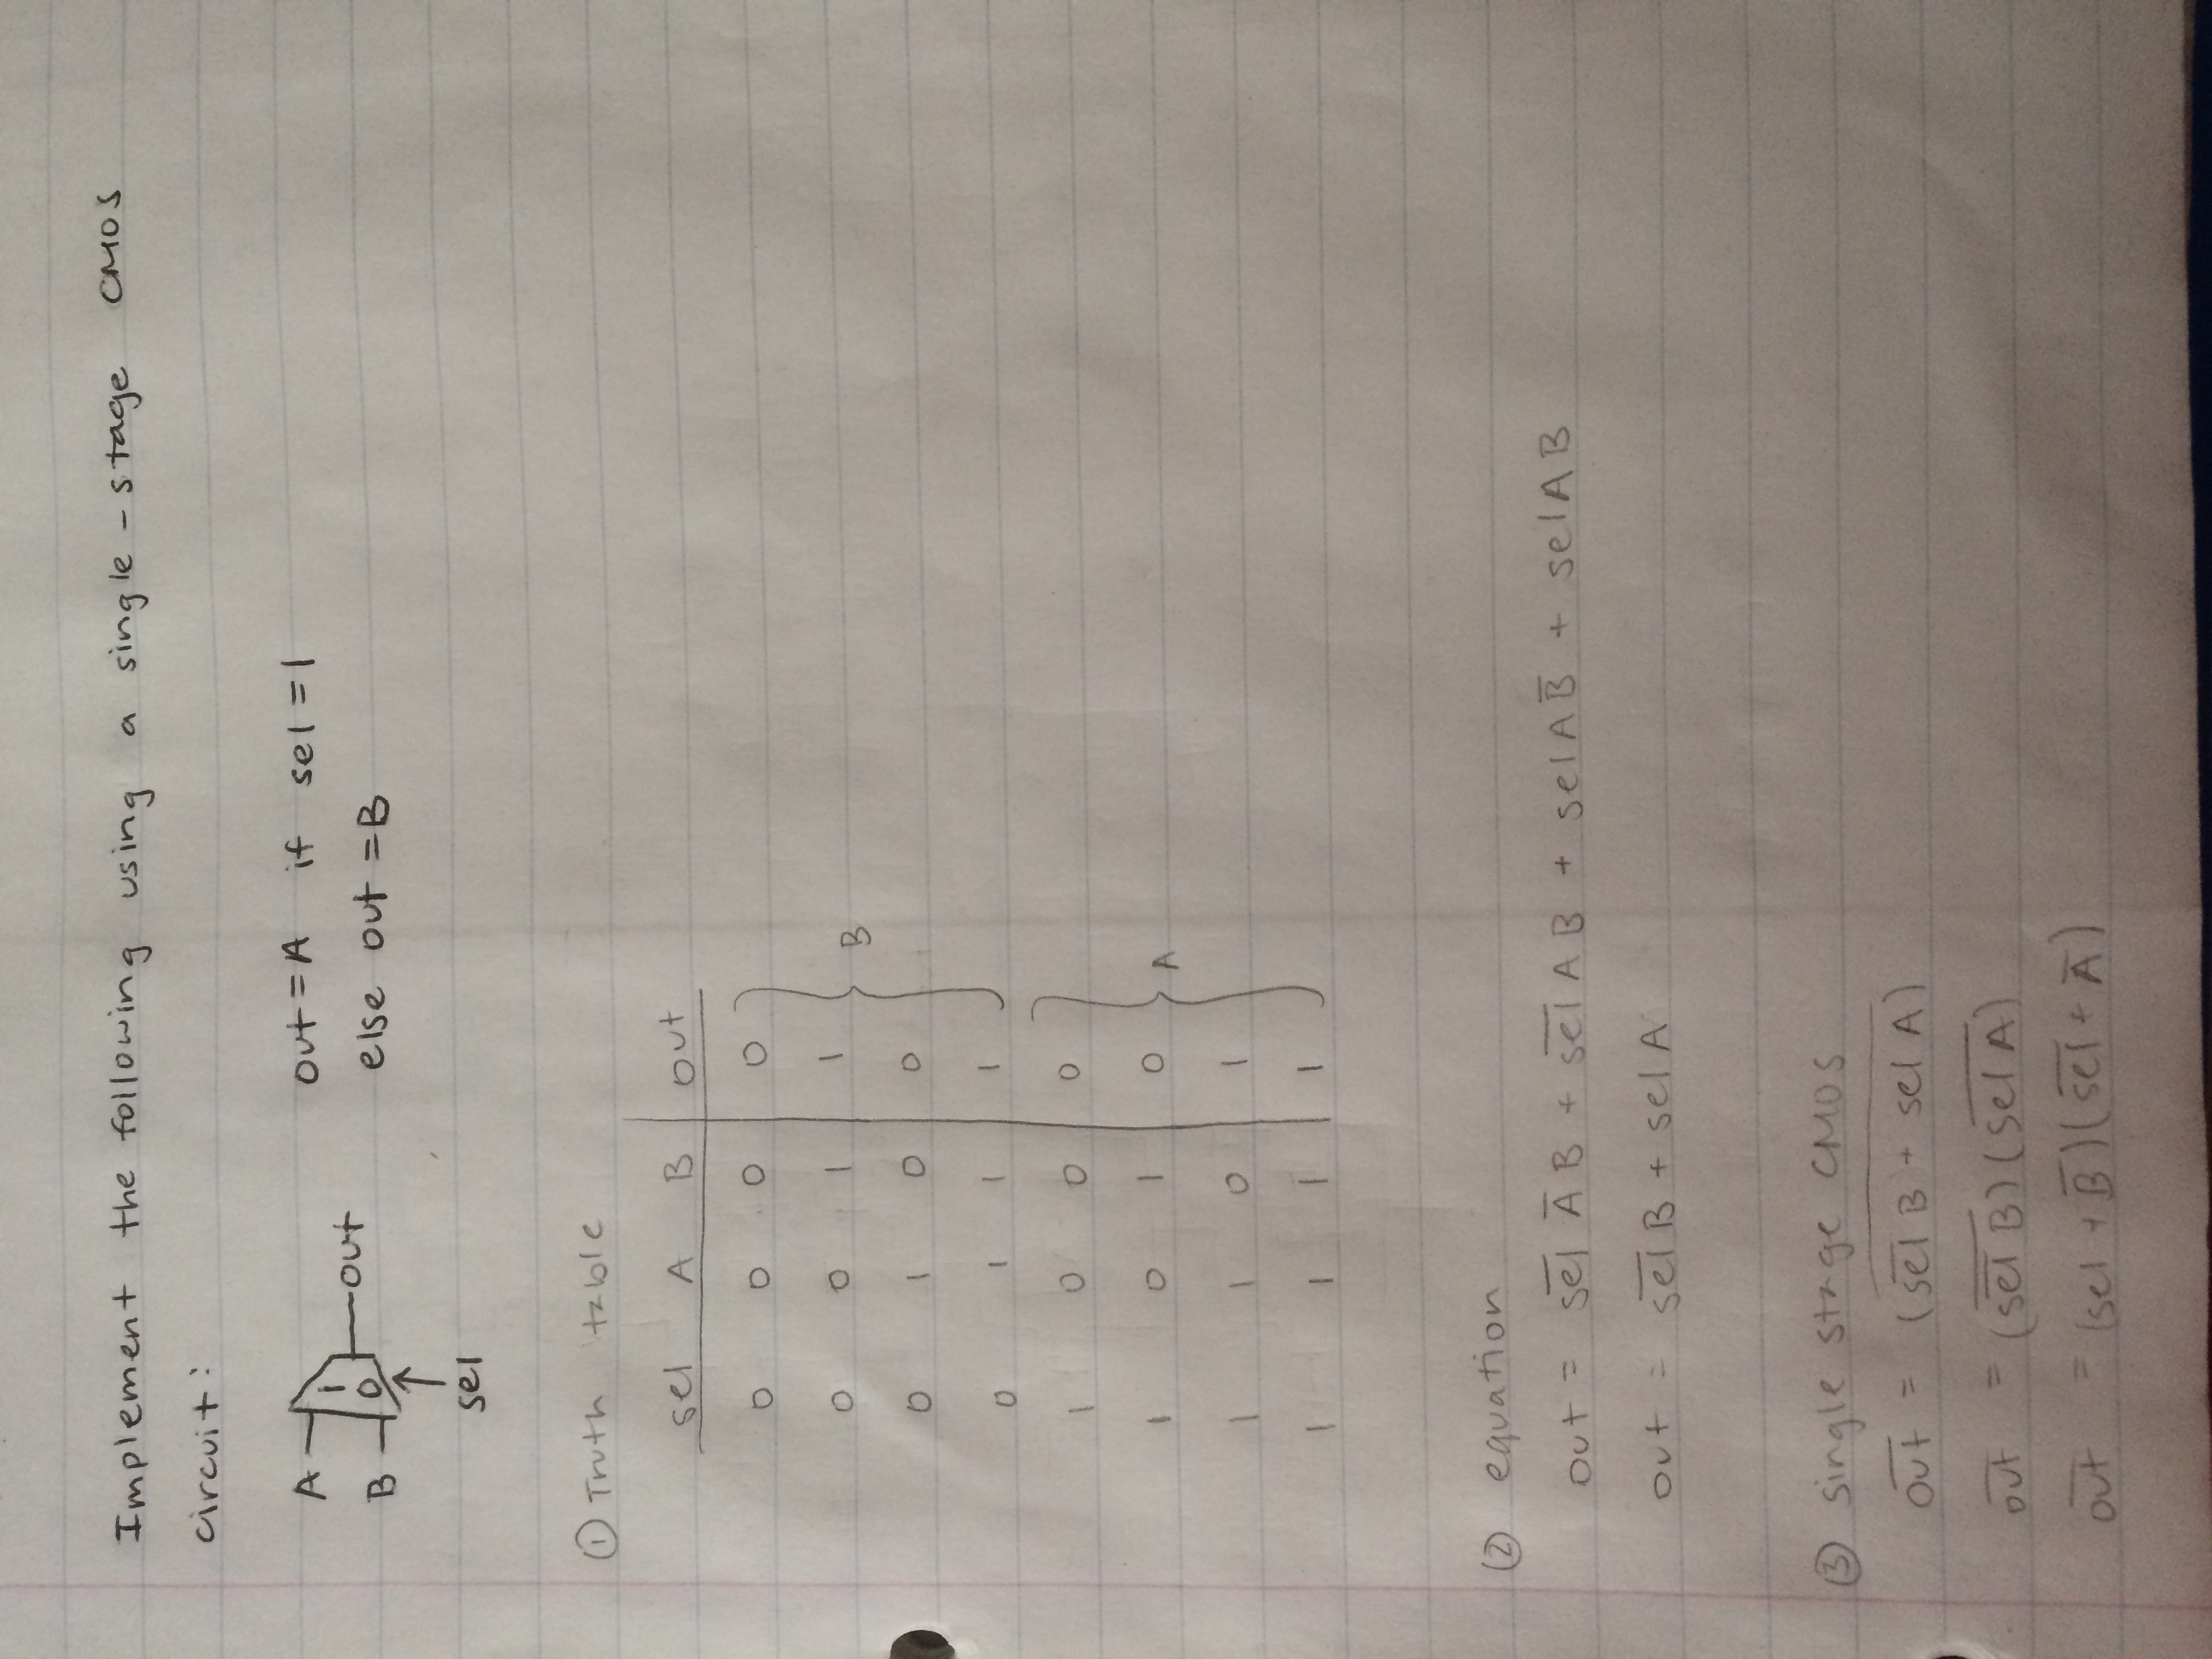 Implement the following using a single-stage CMOS
circuit:
A
1
out
B
0
sel
out=A if sel=1
else out=B
① Truth table
sel A B out
0 0 0 0
0 0 1 1
B
0 1 0 0
0 1 1 1
1 0 0 0
1 0 1 0
A
1 1 0 1
1 1 1 1
② equation
out = s̅e̅l̅ A̅ B + s̅e̅l̅ A B + sel A B̅ + sel A B
out = s̅e̅l̅ B + sel A
③ single stage CMOS
\overline{out} = \overline{(\overline{sel} B + sel A)}
\overline{out} = (\overline{\overline{sel} B})(\overline{sel A})
\overline{out} = (sel + \overline{B})(\overline{sel} + \overline{A})